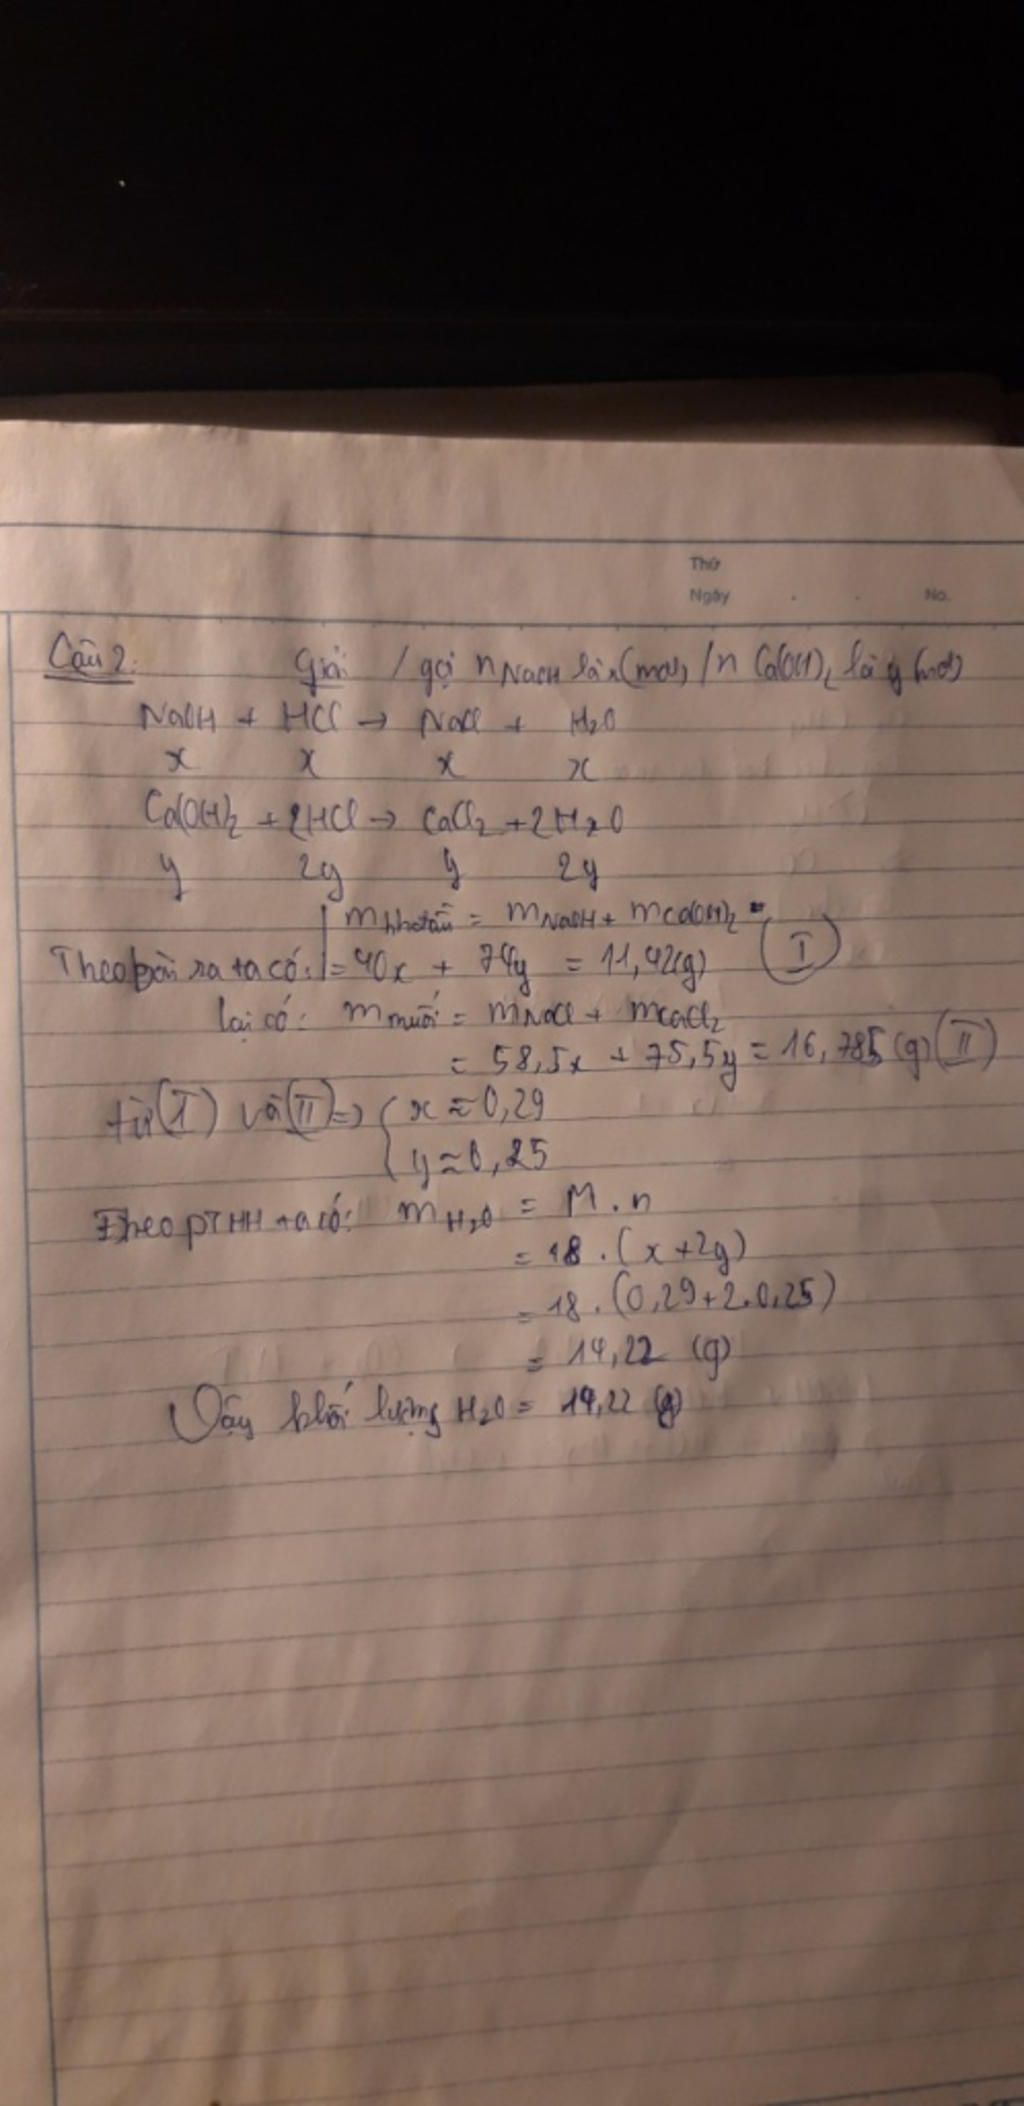 Thứ
Ngày . . No.
Câu 2: Giải / gọi n NaOH là x (mol) / n Ca(OH)₂ là y (mol)
NaOH + HCl → NaCl + H₂O
x x x x
Ca(OH)₂ + 2HCl → CaCl₂ + 2H₂O
y 2y y 2y
m = mNaOH + mCa(OH)₂ =
Theo bài ra ta có: = 40x + 74y = 11,42(g) (I)
lại có: m muối = mNaCl + mCaCl₂
= 58,5x + 75,5y = 16,785 (g) (II)
từ (I) và (II) => { x ≈ 0,29
y ≈ 0,25
Theo PTHH ta có: m H₂O = M . n
= 18 . (x + 2y)
= 18 . (0,29 + 2.0,25)
= 14,22 (g)
Vậy khối lượng H₂O = 14,22 (g)